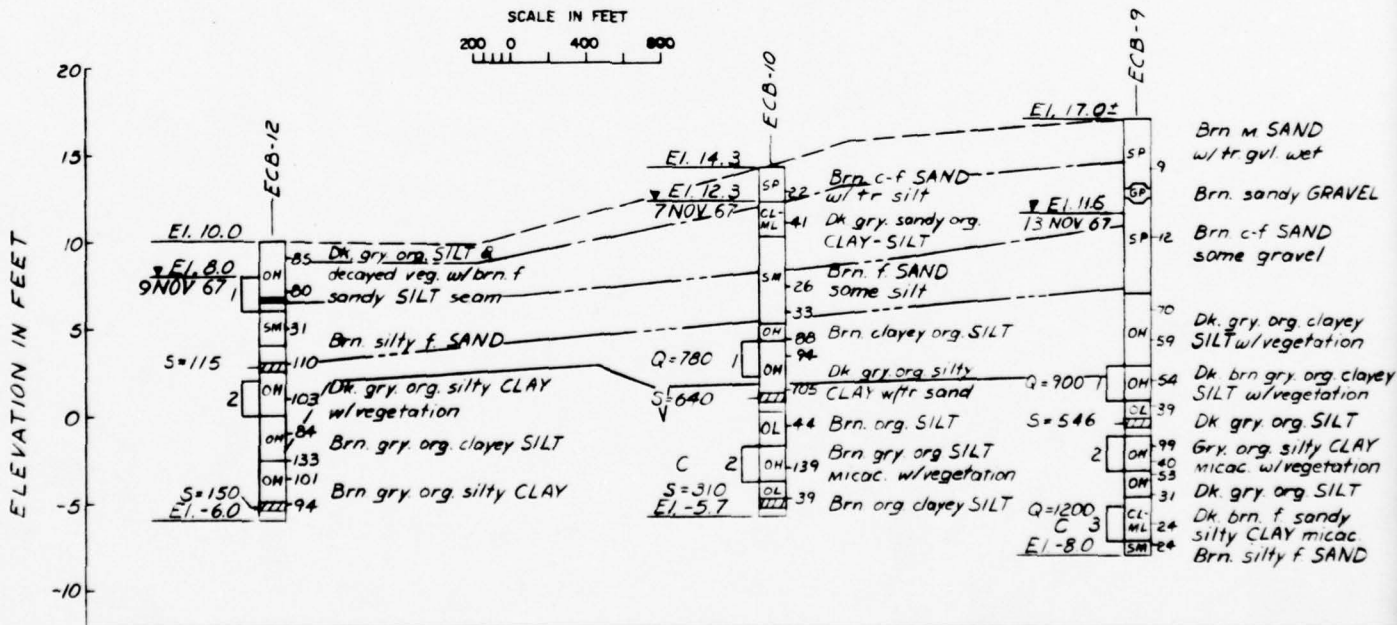 SCALE IN FEET
200 0 400 800
ELEVATION IN FEET
20
15
10
5
0
-5
-10
ECB-12
El. 10.0
El. 8.0
9 NOV 67
1
OH
85
80
SM
31
S=115
110
2
OH
103
OH
84
133
OH
101
S=150
94
El. -6.0
Dk. gry. org. SILT &
decayed veg. w/brn. f
sandy SILT seam
Brn. silty f. SAND
Dk. gry. org. silty CLAY
w/vegetation
Brn. gry. org. clayey SILT
Brn gry. org. silty CLAY
ECB-10
El. 14.3
El. 12.3
7 NOV 67
SP
22
CL-
ML
41
SM
26
33
OH
88
Q=780
1
94
OH
S=640
105
OL
44
C 2
OH
139
S=310
OL
39
El. -5.7
Brn. c-f SAND
w/tr silt
Dk gry. sandy org.
CLAY-SILT
Brn. f. SAND
some silt
Brn. clayey org. SILT
Dk gry. org. silty
CLAY w/tr sand
Brn. org. SILT
Brn. gry org. SILT
micac. w/vegetation
Brn org clayey SILT
ECB-9
El. 17.0±
SP
9
GP
El. 11.6
13 NOV 67
SP
12
70
OH
59
Q=900 1
OH
54
OL
39
S=546
2
OH
99
40
OH
53
31
Q=1200
C 3
CL-
ML
24
El -8.0
SM
24
Brn M SAND
w/tr. gvl. wet
Brn. sandy GRAVEL
Brn c-f SAND
some gravel
Dk. gry. org. clayey
SILT w/vegetation
Dk. brn gry. org. clayey
SILT w/vegetation
Dk. gry org. SILT
Gry. org. silty CLAY
micac. w/vegetation
Dk. gry. org. SILT
Dk. brn. f. sandy
silty CLAY micac.
Brn. silty f. SAND